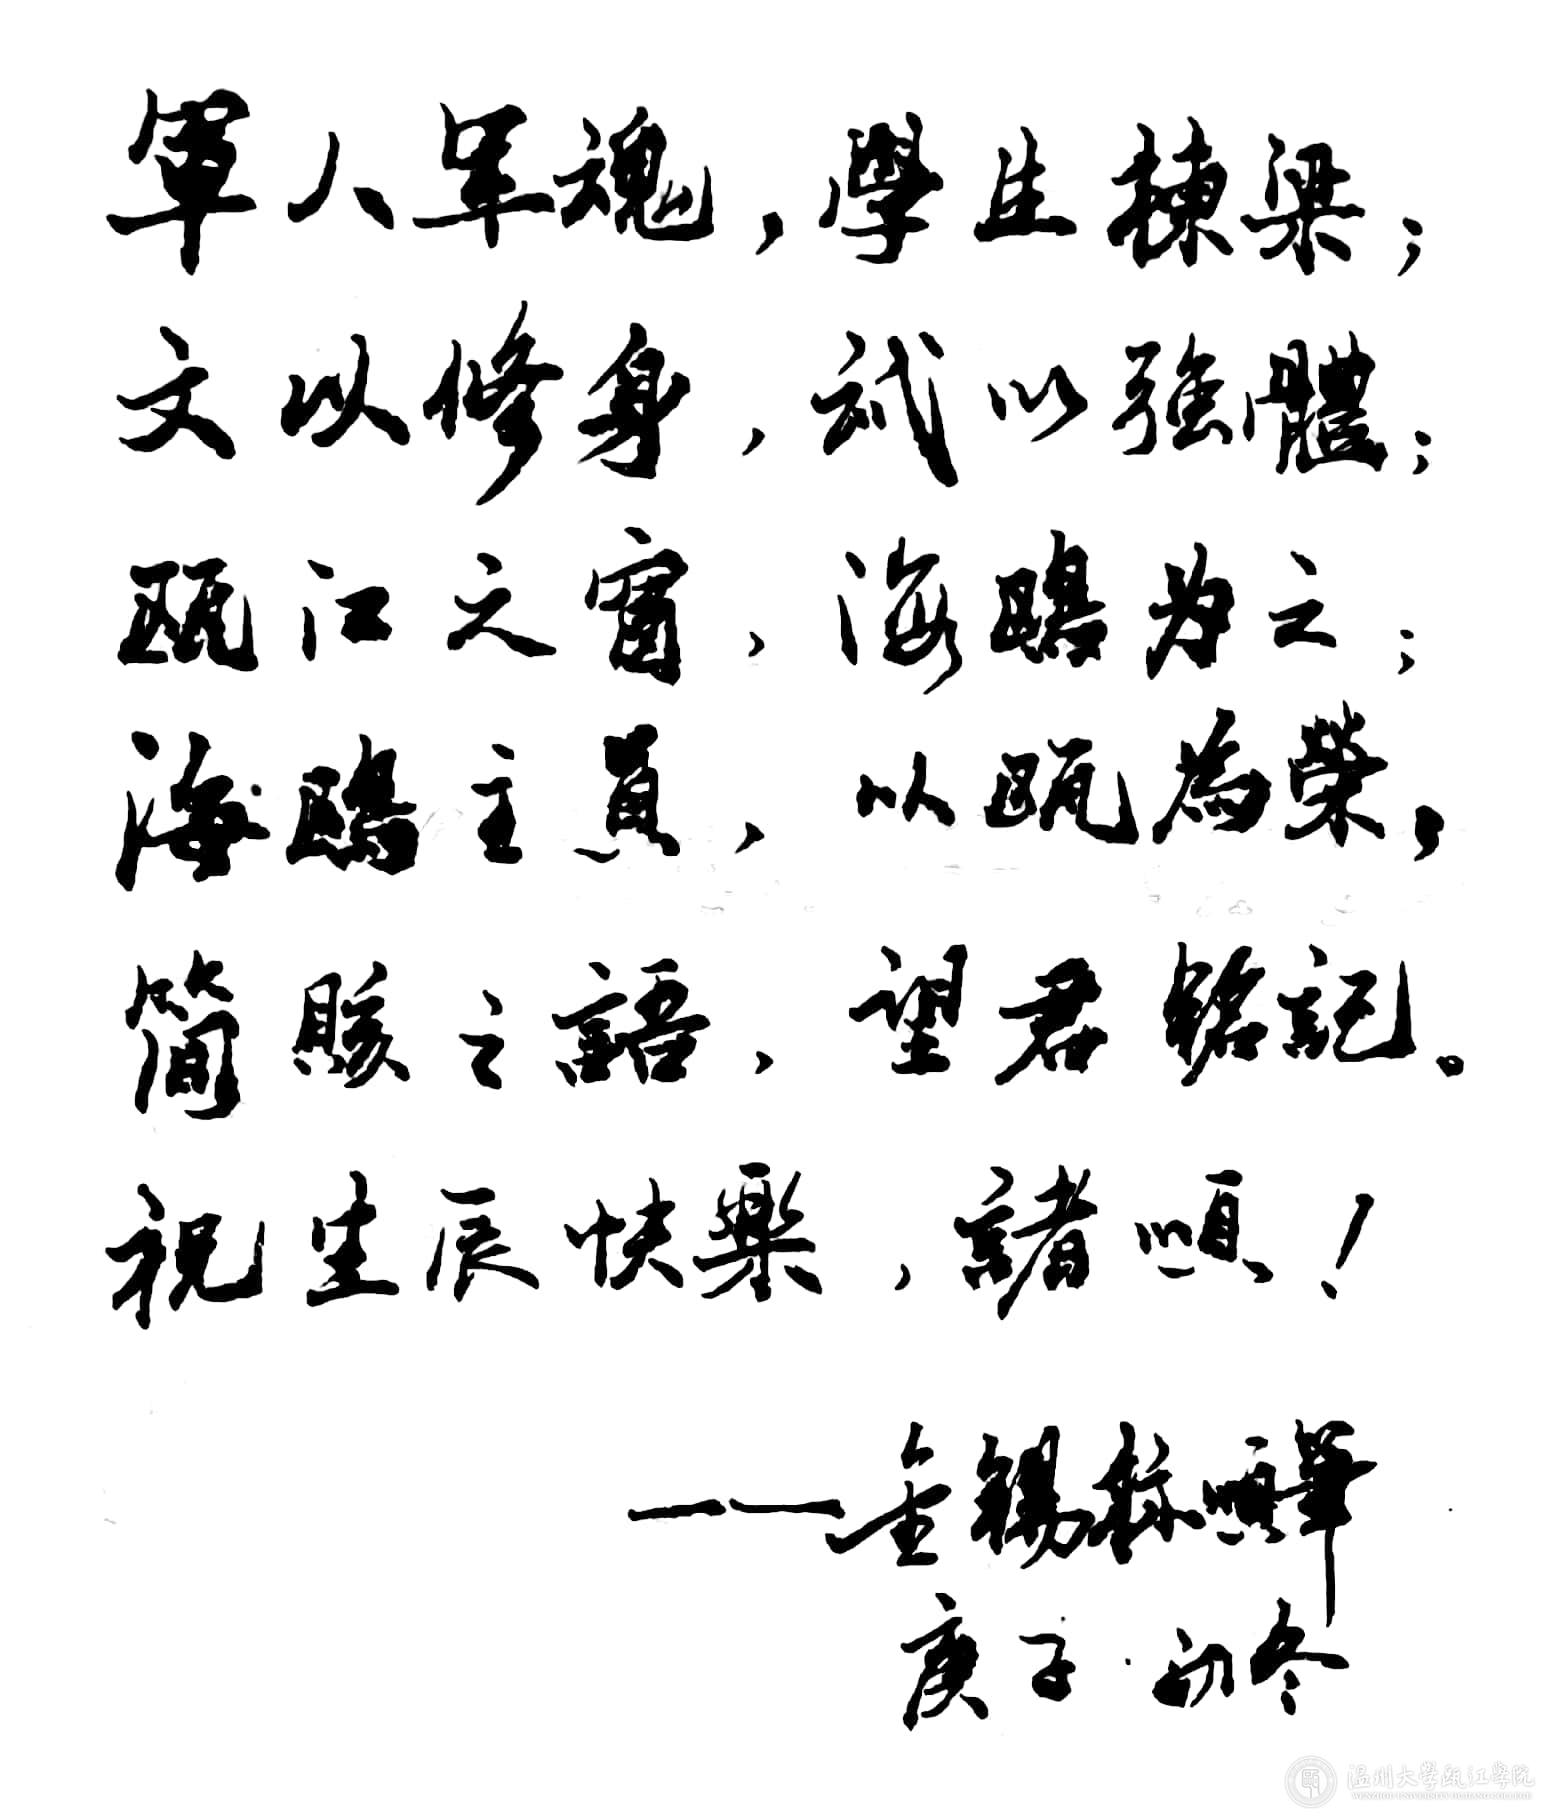 軍人軍魂，學生棟梁；
文以修身，武以强體；
甌江之窗，海鷗为之；
海鷗主員，以甌為榮，
簡賅之語，望君銘記。
祝生辰快樂，諸順！
——金錫順筆
庚子·初冬
温州大學甌江學院
WENZHOU UNIVERSITY OUJIANG COLLEGE